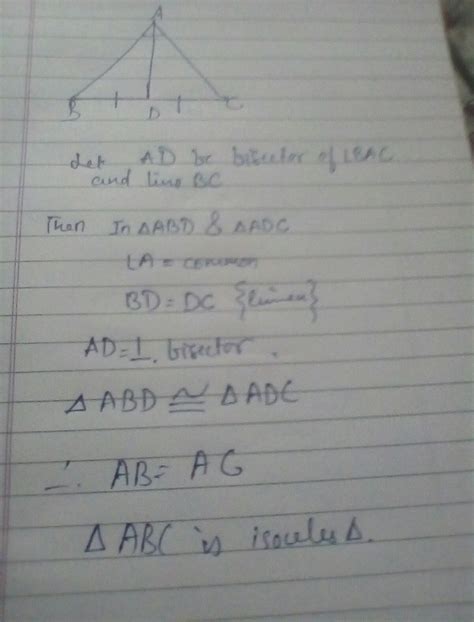 A
B D C
Let AD be bisector of ∠BAC
and line BC
Then In △ABD & △ADC
∠A = common
BD = DC {Given}
AD = ⊥. bisector.
△ ABD ≅ △ADC
∴ AB = AC
△ ABC is isoceles △.